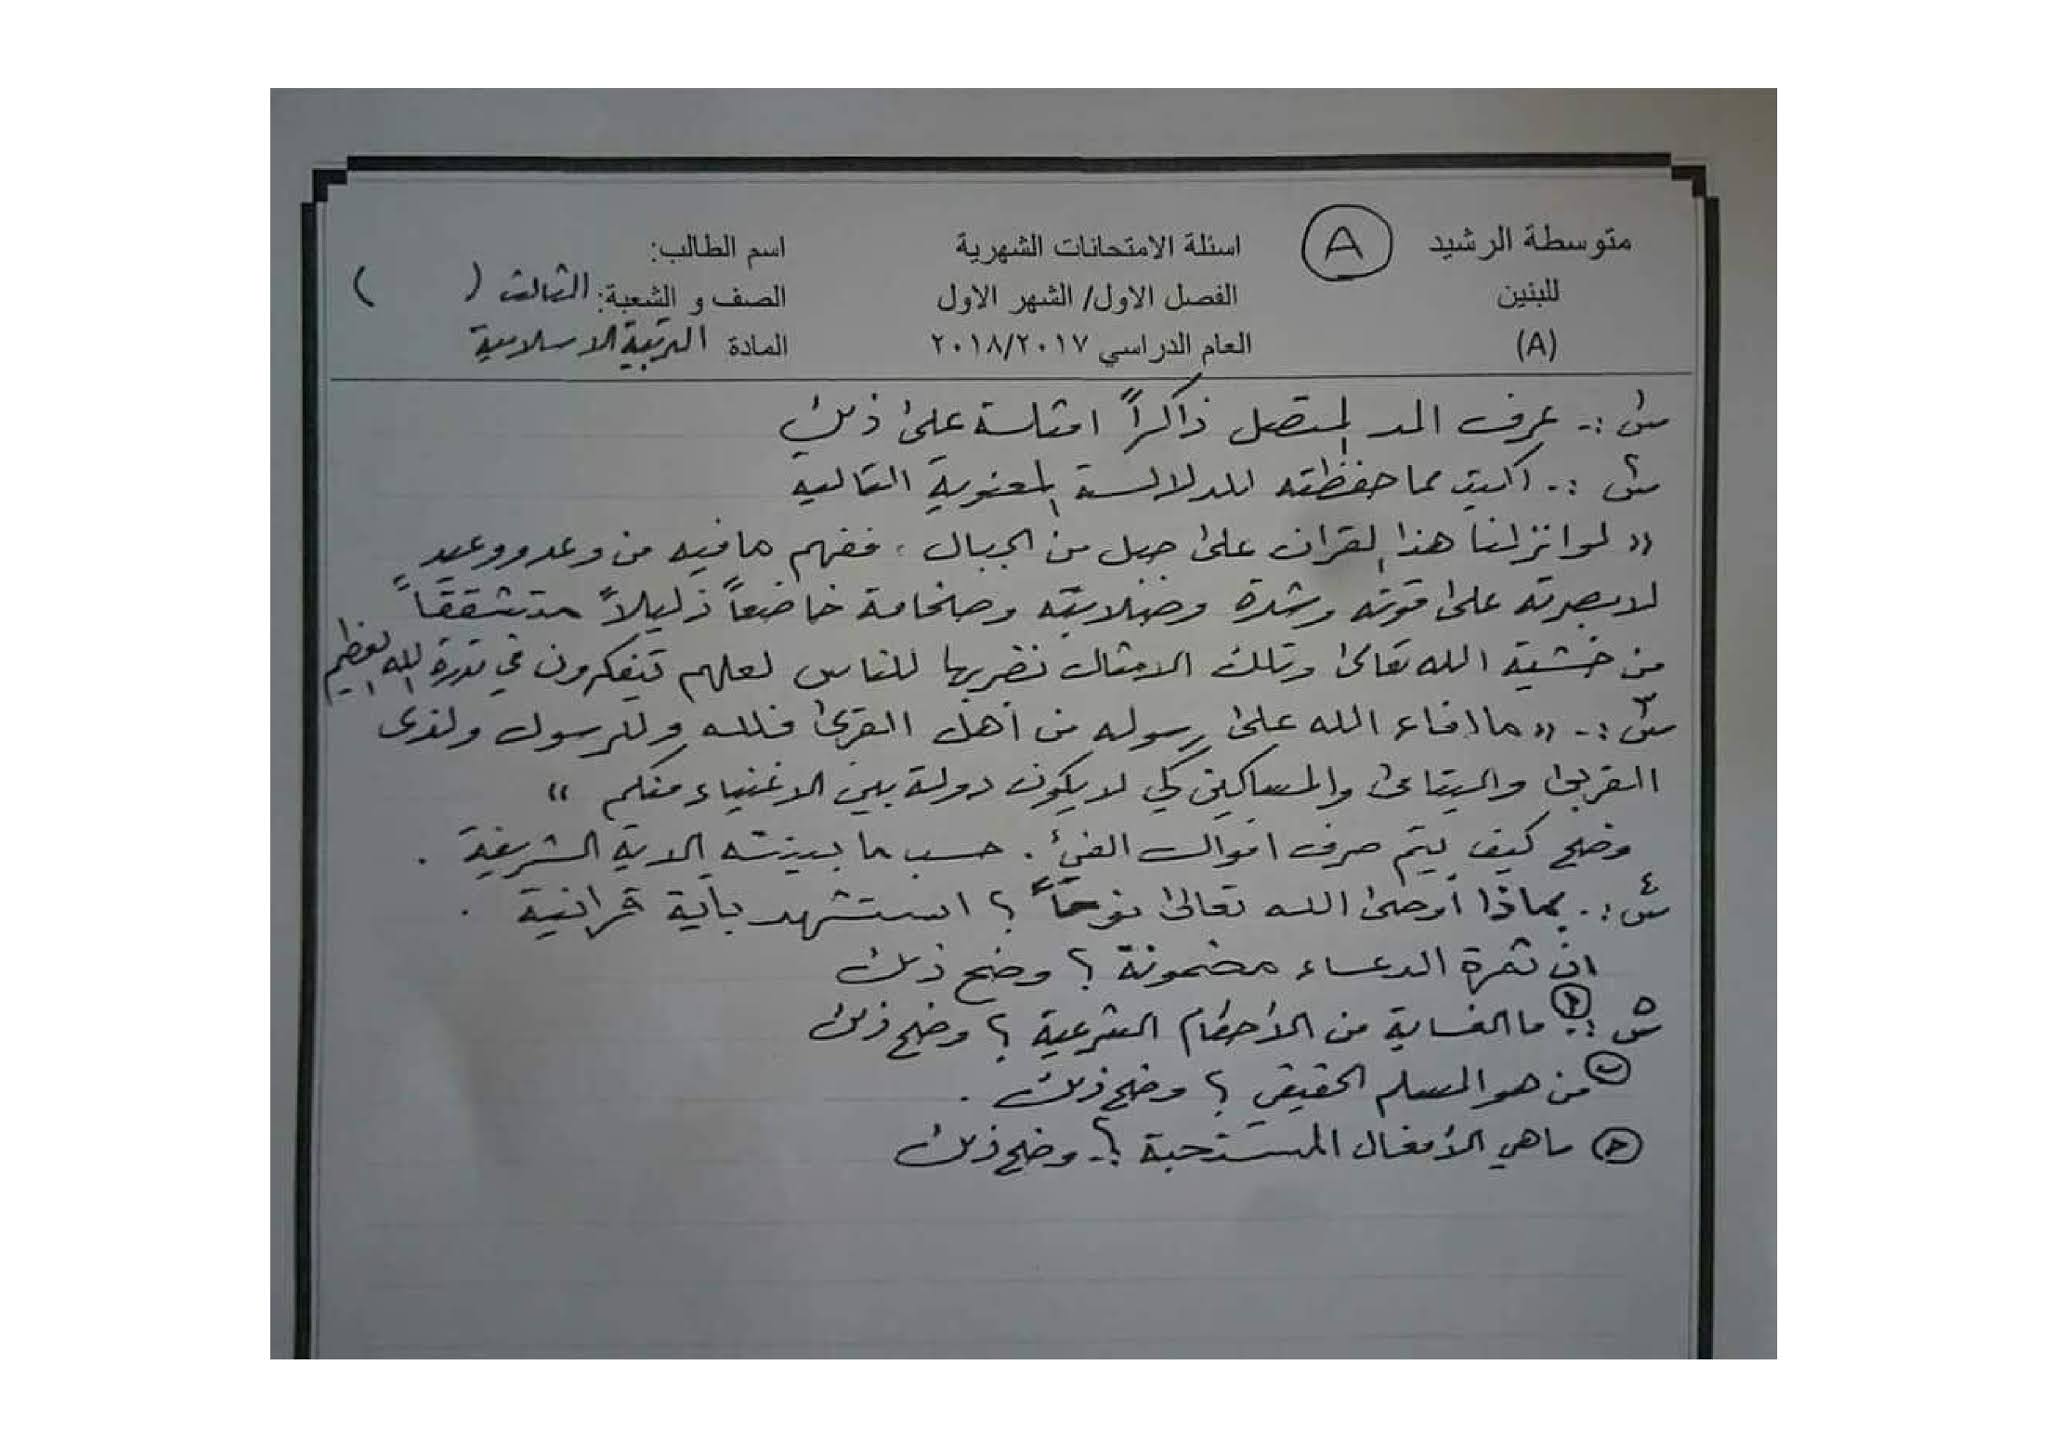 متوسطة الرشيد
للبنين
(A)
A
اسئلة الامتحانات الشهرية
الفصل الاول/ الشهر الاول
العام الدراسي ٢٠١٨/٢٠١٧
اسم الطالب:
الصف و الشعبة: الثالث ( )
المادة التربية الاسلامية
س١ :- عرف المد المتصل ذاكراً امثلة على ذلك
س٢ :- اكتب مما حفظته للدلالة المعنوية التالية
« لو انزلنا هذا القران على جبل من الجبال ، ففهم مافيه من وعد ووعيد
لابصرته على قوته وشدة وصلابته وضخامة خاضعاً ذليلاً متشققاً
من خشية الله تعالى وتلك الامثال نضربها للناس لعلهم يتفكرون في قدرة الله العظيم
س٣ :- « ما افاء الله على رسوله من أهل القرى فلله وللرسول ولذى
القربى واليتامى والمساكين كي لا يكون دولة بين الاغنياء منكم »
وضح كيف يتم صرف اموال الفيء . حسب ما بينته الاية الشريفة .
س٤ :- بماذا أوصى الله تعالى نوحاً ؟ استشهد بآية قرانية .
ان ثمرة الدعاء مضمونة ؟ وضح ذلك
س٥ :- أ ما الغاية من الأحكام الشرعية ؟ وضح ذلك
ب من هو المسلم الحقيقي ؟ وضح ذلك .
ج ماهي الأفعال المستحبة ؟ وضح ذلك